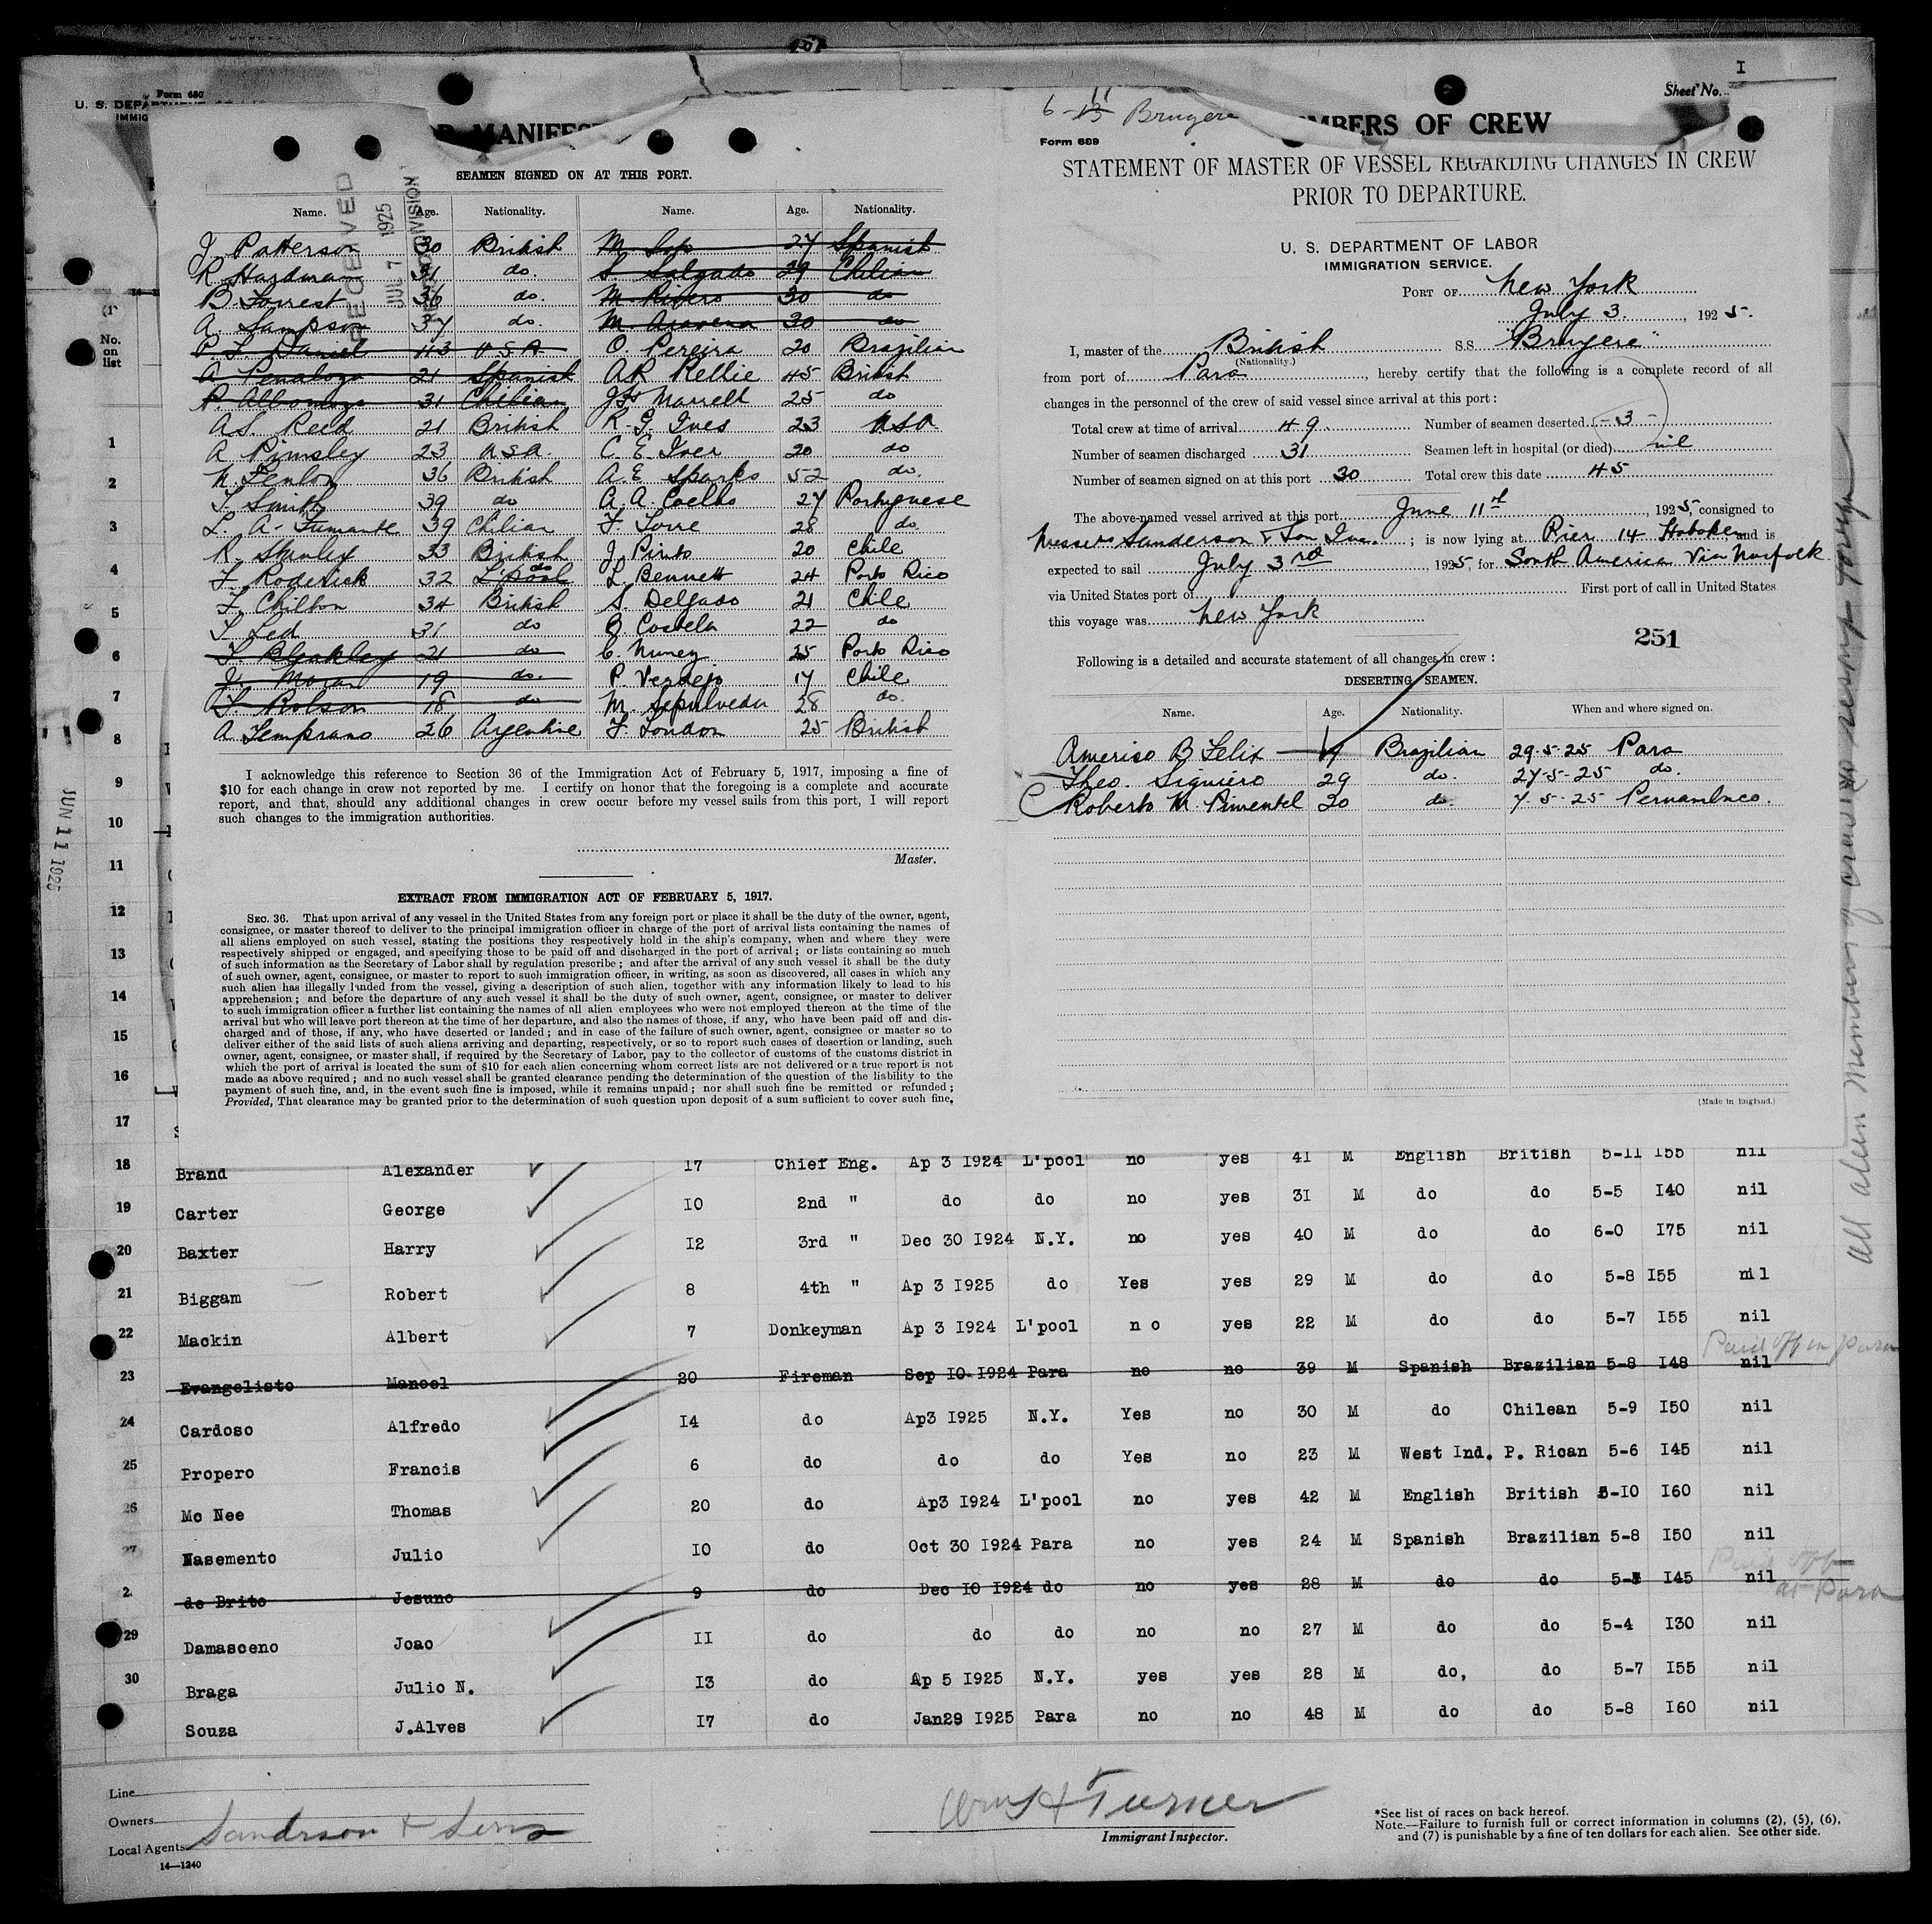 I
Form 680
U. S. DEPA
IMMIG
MANIFES
MBERS OF CREW
Sheet No.
6-
11
Bruyere
Form 689
SEAMEN SIGNED ON AT THIS PORT.
Name. Age. Nationality. Name. Age. Nationality.
J Patterson 30 British M. Soto 27 Spanish
R. Hardman 31 do. S. Salgado 29 Chilian
B. Forrest 36 do. M. Rivero 30 do
A. Sampson 37 do. M. Aravena 30 do
P. L. Daniel 43 U.S.A. O. Pereira 20 Brazilian
A Penaloza 21 Spanish A.R. Rellie 45 British
R. Albornoz 31 Chilian Marrell 25 do
A.S. Reed 21 British R. G. Ives 23 USA
A Rimsley 23 U.S.A. C. E. Iver 20 do
N. Fenlon 36 British A.E. Sparks 52 do.
T. Smith 39 do A. A. Coelho 27 Portuguese
L. A. Fumante 39 Chilian F. Torre 28 do.
R. Stanley 33 British J. Pinto 20 Chile
F. Roderick 32 L'pool do L. Bennett 24 Porto Rico
F. Chilton 34 British S. Delgado 21 Chile
T. Led 31 do B. Costela 22 do
T. Bleakley 21 do C. Nunez 25 Porto Rico
J. Moran 19 do. P. Verdejo 17 Chile
T. Robson 18 do M. Sepulveda 28 do.
A Temprano 26 Argentine F. London 25 British
RECEIVED
JUL 7 1925
DIVISION
I acknowledge this reference to Section 36 of the Immigration Act of February 5, 1917, imposing a fine of
$10 for each change in crew not reported by me. I certify on honor that the foregoing is a complete and accurate
report, and that, should any additional changes in crew occur before my vessel sails from this port, I will report
such changes to the immigration authorities.
Master.
EXTRACT FROM IMMIGRATION ACT OF FEBRUARY 5, 1917.
SEC. 36. That upon arrival of any vessel in the United States from any foreign port or place it shall be the duty of the owner, agent,
consignee, or master thereof to deliver to the principal immigration officer in charge of the port of arrival lists containing the names of
all aliens employed on such vessel, stating the positions they respectively hold in the ship's company, when and where they were
respectively shipped or engaged, and specifying those to be paid off and discharged in the port of arrival; or lists containing so much
of such information as the Secretary of Labor shall by regulation prescribe; and after the arrival of any such vessel it shall be the duty
of such owner, agent, consignee, or master to report to such immigration officer, in writing, as soon as discovered, all cases in which any
such alien has illegally landed from the vessel, giving a description of such alien, together with any information likely to lead to his
apprehension; and before the departure of any such vessel it shall be the duty of such owner, agent, consignee, or master to deliver
to such immigration officer a further list containing the names of all alien employees who were not employed thereon at the time of the
arrival but who will leave port thereon at the time of her departure, and also the names of those, if any, who have been paid off and dis-
charged and of those, if any, who have deserted or landed; and in case of the failure of such owner, agent, consignee or master so to
deliver either of the said lists of such aliens arriving and departing, respectively, or so to report such cases of desertion or landing, such
owner, agent, consignee, or master shall, if required by the Secretary of Labor, pay to the collector of customs of the customs district in
which the port of arrival is located the sum of $10 for each alien concerning whom correct lists are not delivered or a true report is not
made as above required; and no such vessel shall be granted clearance pending the determination of the question of the liability to the
payment of such fine, and, in the event such fine is imposed, while it remains unpaid; nor shall such fine be remitted or refunded;
Provided, That clearance may be granted prior to the determination of such question upon deposit of a sum sufficient to cover such fine.
STATEMENT OF MASTER OF VESSEL REGARDING CHANGES IN CREW
PRIOR TO DEPARTURE.
U. S. DEPARTMENT OF LABOR
IMMIGRATION SERVICE.
PORT OF New York
July 3. , 1925.
I, master of the British S.S "Bruyere"
(Nationality.)
from port of Para , hereby certify that the following is a complete record of all
changes in the personnel of the crew of said vessel since arrival at this port:
Total crew at time of arrival 49 Number of seamen deserted -3-
Number of seamen discharged 31 Seamen left in hospital (or died) nil
Number of seamen signed on at this port 30 Total crew this date 45
The above-named vessel arrived at this port June 11th , 1925, consigned to
Messrs Sanderson & Son Inc. ; is now lying at Pier 14 Hoboken and is
expected to sail July 3rd , 1925, for South America Via Norfolk
via United States port of First port of call in United States
this voyage was New York
251
Following is a detailed and accurate statement of all changes in crew:
DESERTING SEAMEN.
Name. Age. Nationality. When and where signed on.
Ameriso B Felix 19 Brazilian 29-5-25 Para
Theo. Siguiero 29 do. 27-5-25 do.
Roberto M. Pimentel 20 do. 7-5-25 Pernambuco.
(Made in England.)
No. on list
1
2
3
4
5
6
7
8
9
10
11
12
13
14
15
16
17
JUN 11 1925
18 Brand Alexander 17 Chief Eng. Ap 3 1924 L'pool no yes 41 M English British 5-11 155 nil
19 Carter George 10 2nd " do do no yes 31 M do do 5-5 140 nil
20 Baxter Harry 12 3rd " Dec 30 1924 N.Y. no yes 40 M do do 6-0 175 nil
21 Biggam Robert 8 4th " Ap 3 1925 do Yes yes 29 M do do 5-8 155 nil
22 Mackin Albert 7 Donkeyman Ap 3 1924 L'pool no yes 22 M do do 5-7 155 nil
23 Evangelisto Manoel 20 Fireman Sep 10 1924 Para no no 39 M Spanish Brazilian 5-8 148 nil Paid off in Para
24 Cardoso Alfredo 14 do Ap3 1925 N.Y. Yes no 30 M do Chilean 5-9 150 nil
25 Propero Francis 6 do do do Yes no 23 M West Ind. P. Rican 5-6 145 nil
26 Mc Nee Thomas 20 do Ap3 1924 L'pool no yes 42 M English British 5-10 160 nil
27 Nasemento Julio 10 do Oct 30 1924 Para no yes 24 M Spanish Brazilian 5-8 150 nil
2 de Brito Jesuno 9 do Dec 10 1924 do no yes 28 M do do 5- 145 nil Paid off at Para
29 Damasceno Joao 11 do do do no no 27 M do do 5-4 130 nil
30 Braga Julio N. 13 do Ap 5 1925 N.Y. yes yes 28 M do, do 5-7 155 nil
Souza J.Alves 17 do Jan29 1925 Para no no 48 M do do 5-8 160 nil
All alien members of crew
Line
Owners
Local Agents Sandrson & Sens
14—1240
Wm H Turner
Immigrant Inspector.
*See list of races on back hereof.
Note.—Failure to furnish full or correct information in columns (2), (5), (6),
and (7) is punishable by a fine of ten dollars for each alien. See other side.